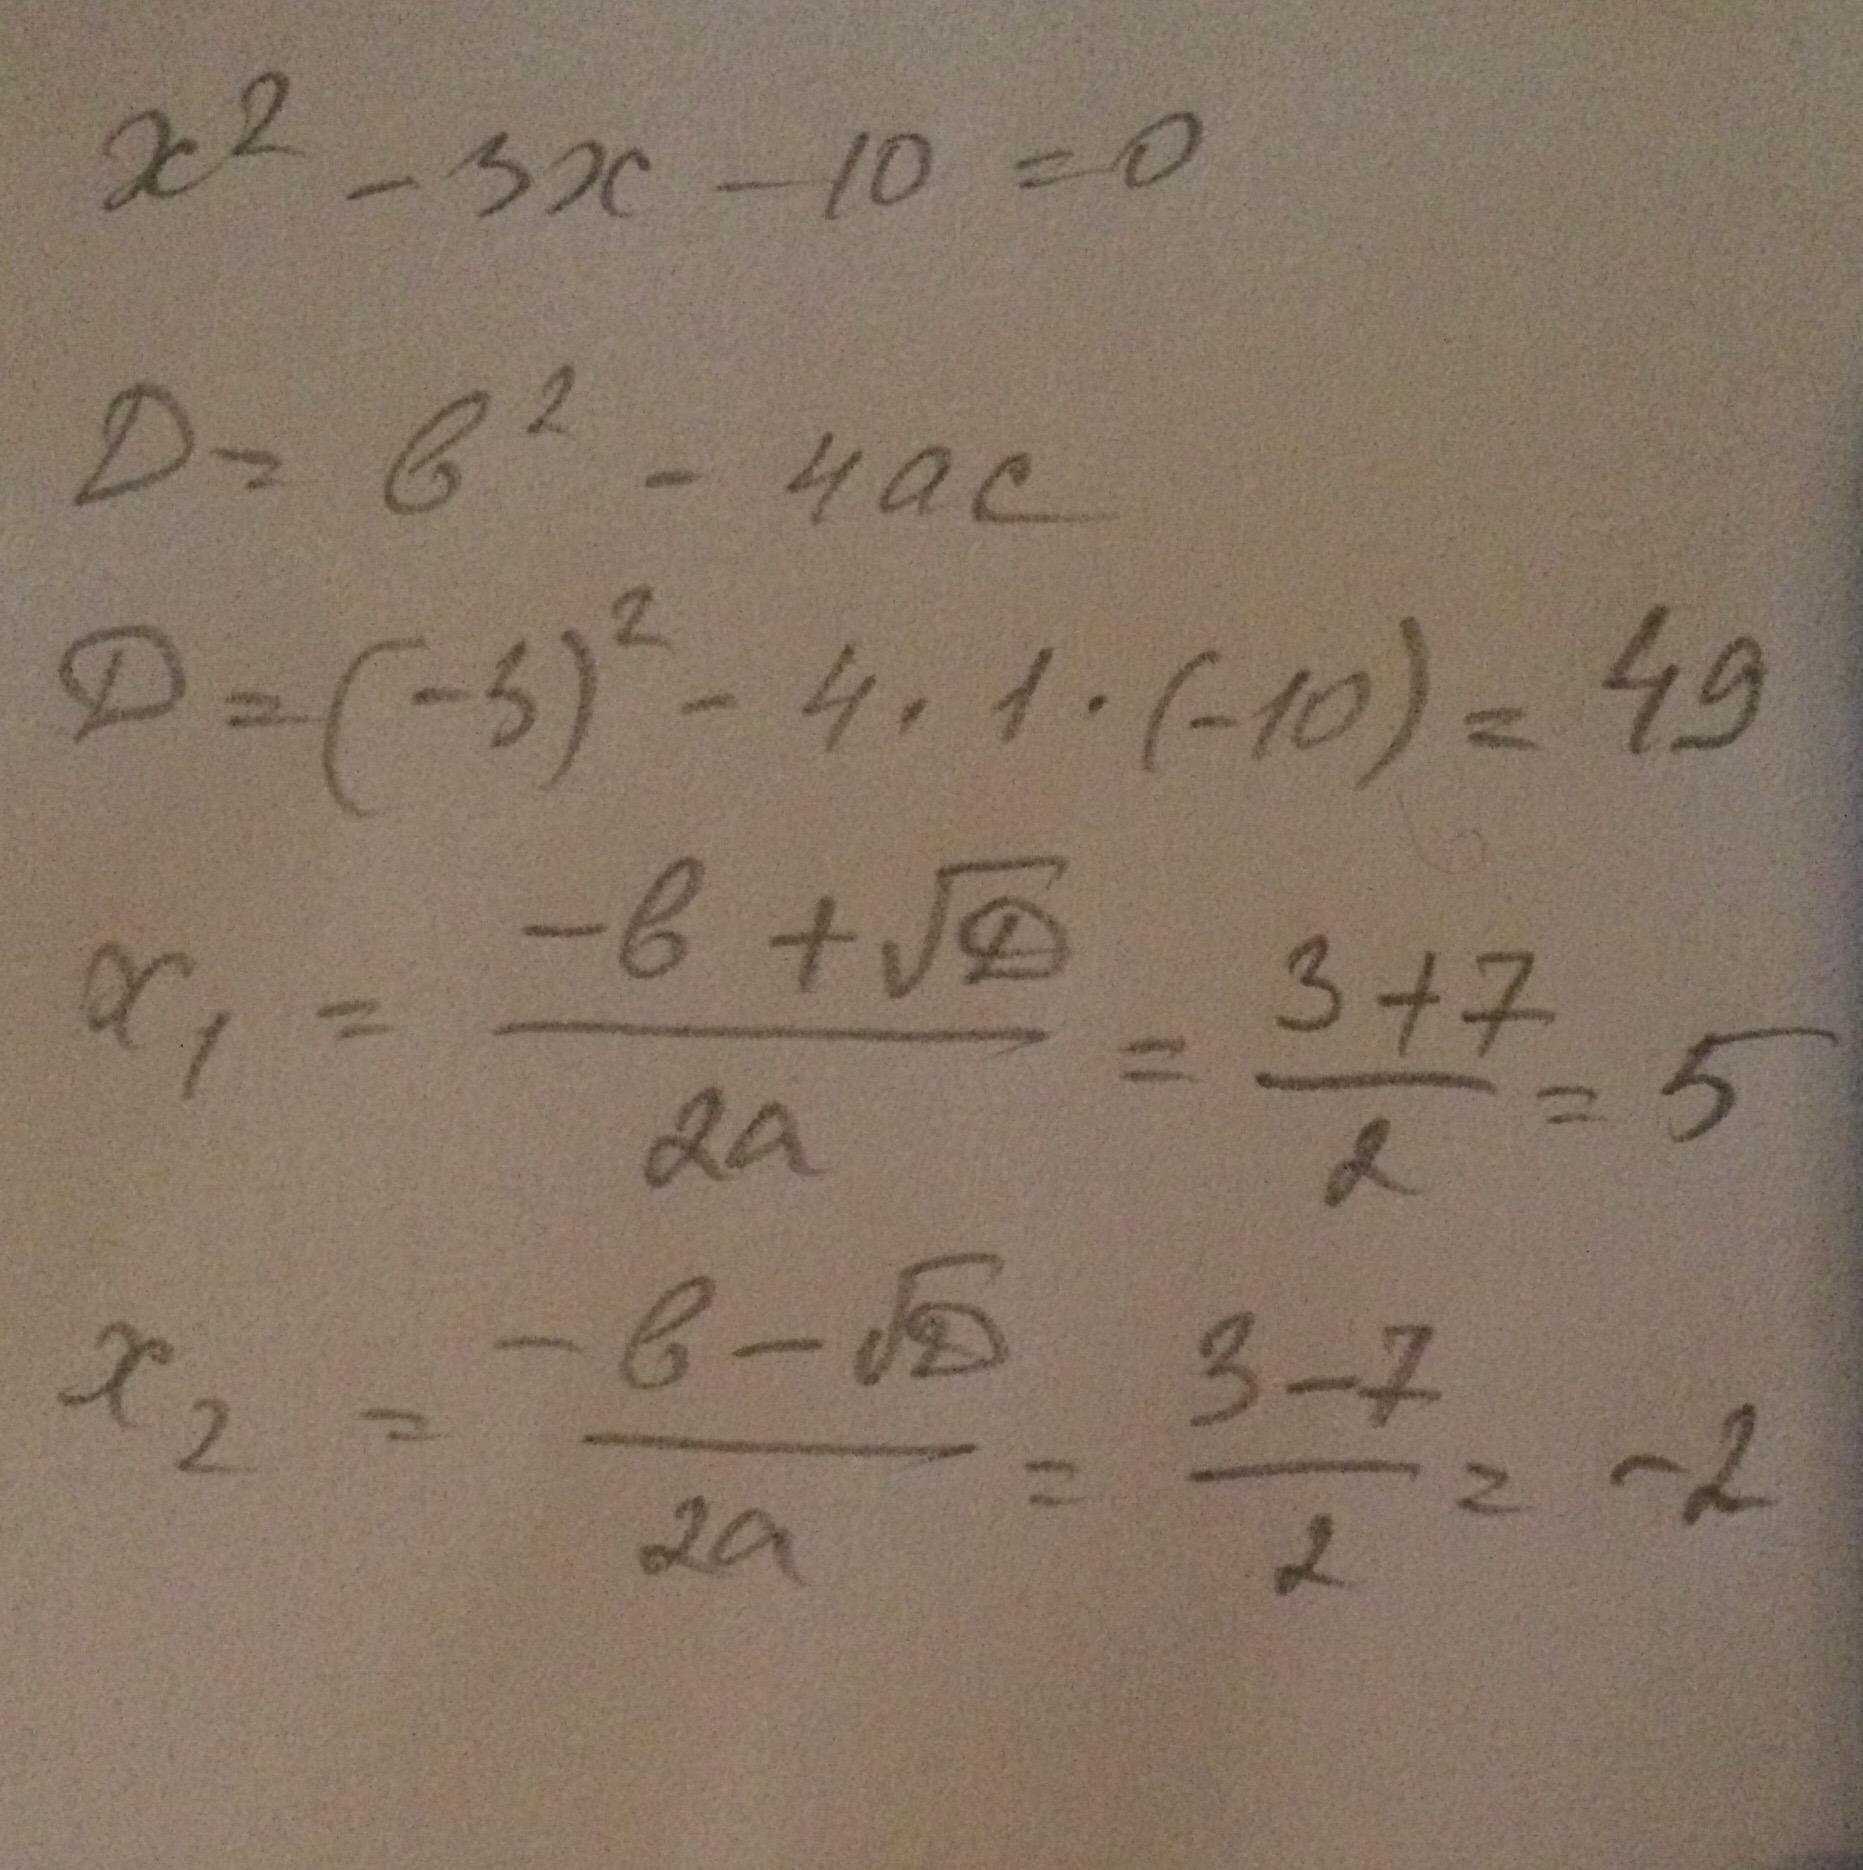 x² - 3x - 10 = 0
D = b² - 4ac
D = (-3)² - 4 · 1 · (-10) = 49
x₁ = (-b + √D) / 2a = (3 + 7) / 2 = 5
x₂ = (-b - √D) / 2a = (3 - 7) / 2 = -2